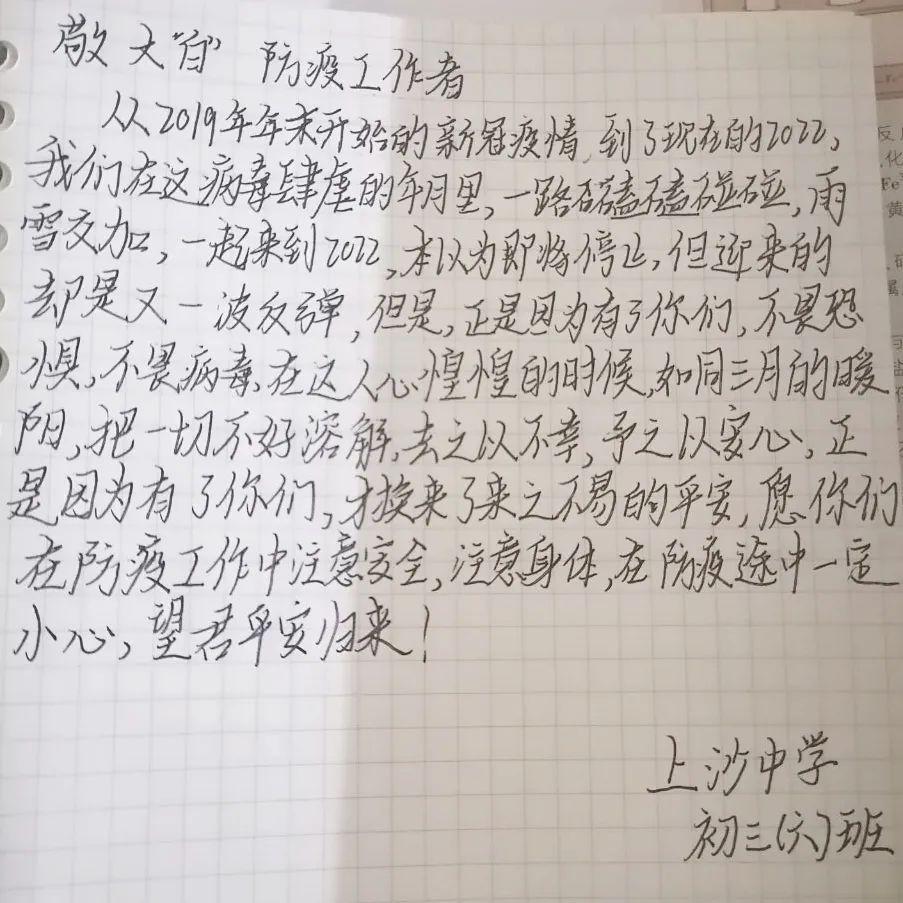 敬大“白”防疫工作者
从2019年年末开始的新冠疫情,到了现在的2022,
我们在这病毒肆虐的年月里,一路磕磕碰碰,雨
雪交加,一起来到2022,本以为即将停止,但迎来的
却是又一波反弹,但是,正是因为有了你们,不畏恐
惧,不畏病毒,在这人心惶惶的时候,如同三月的暖
阳,把一切不好溶解,去之以不幸,予之以安心,正
是因为有了你们,才换来了来之不易的平安,愿你们
在防疫工作中注意安全,注意身体,在防疫途中一定
小心,望君平安归来!
上沙中学
初三(六)班